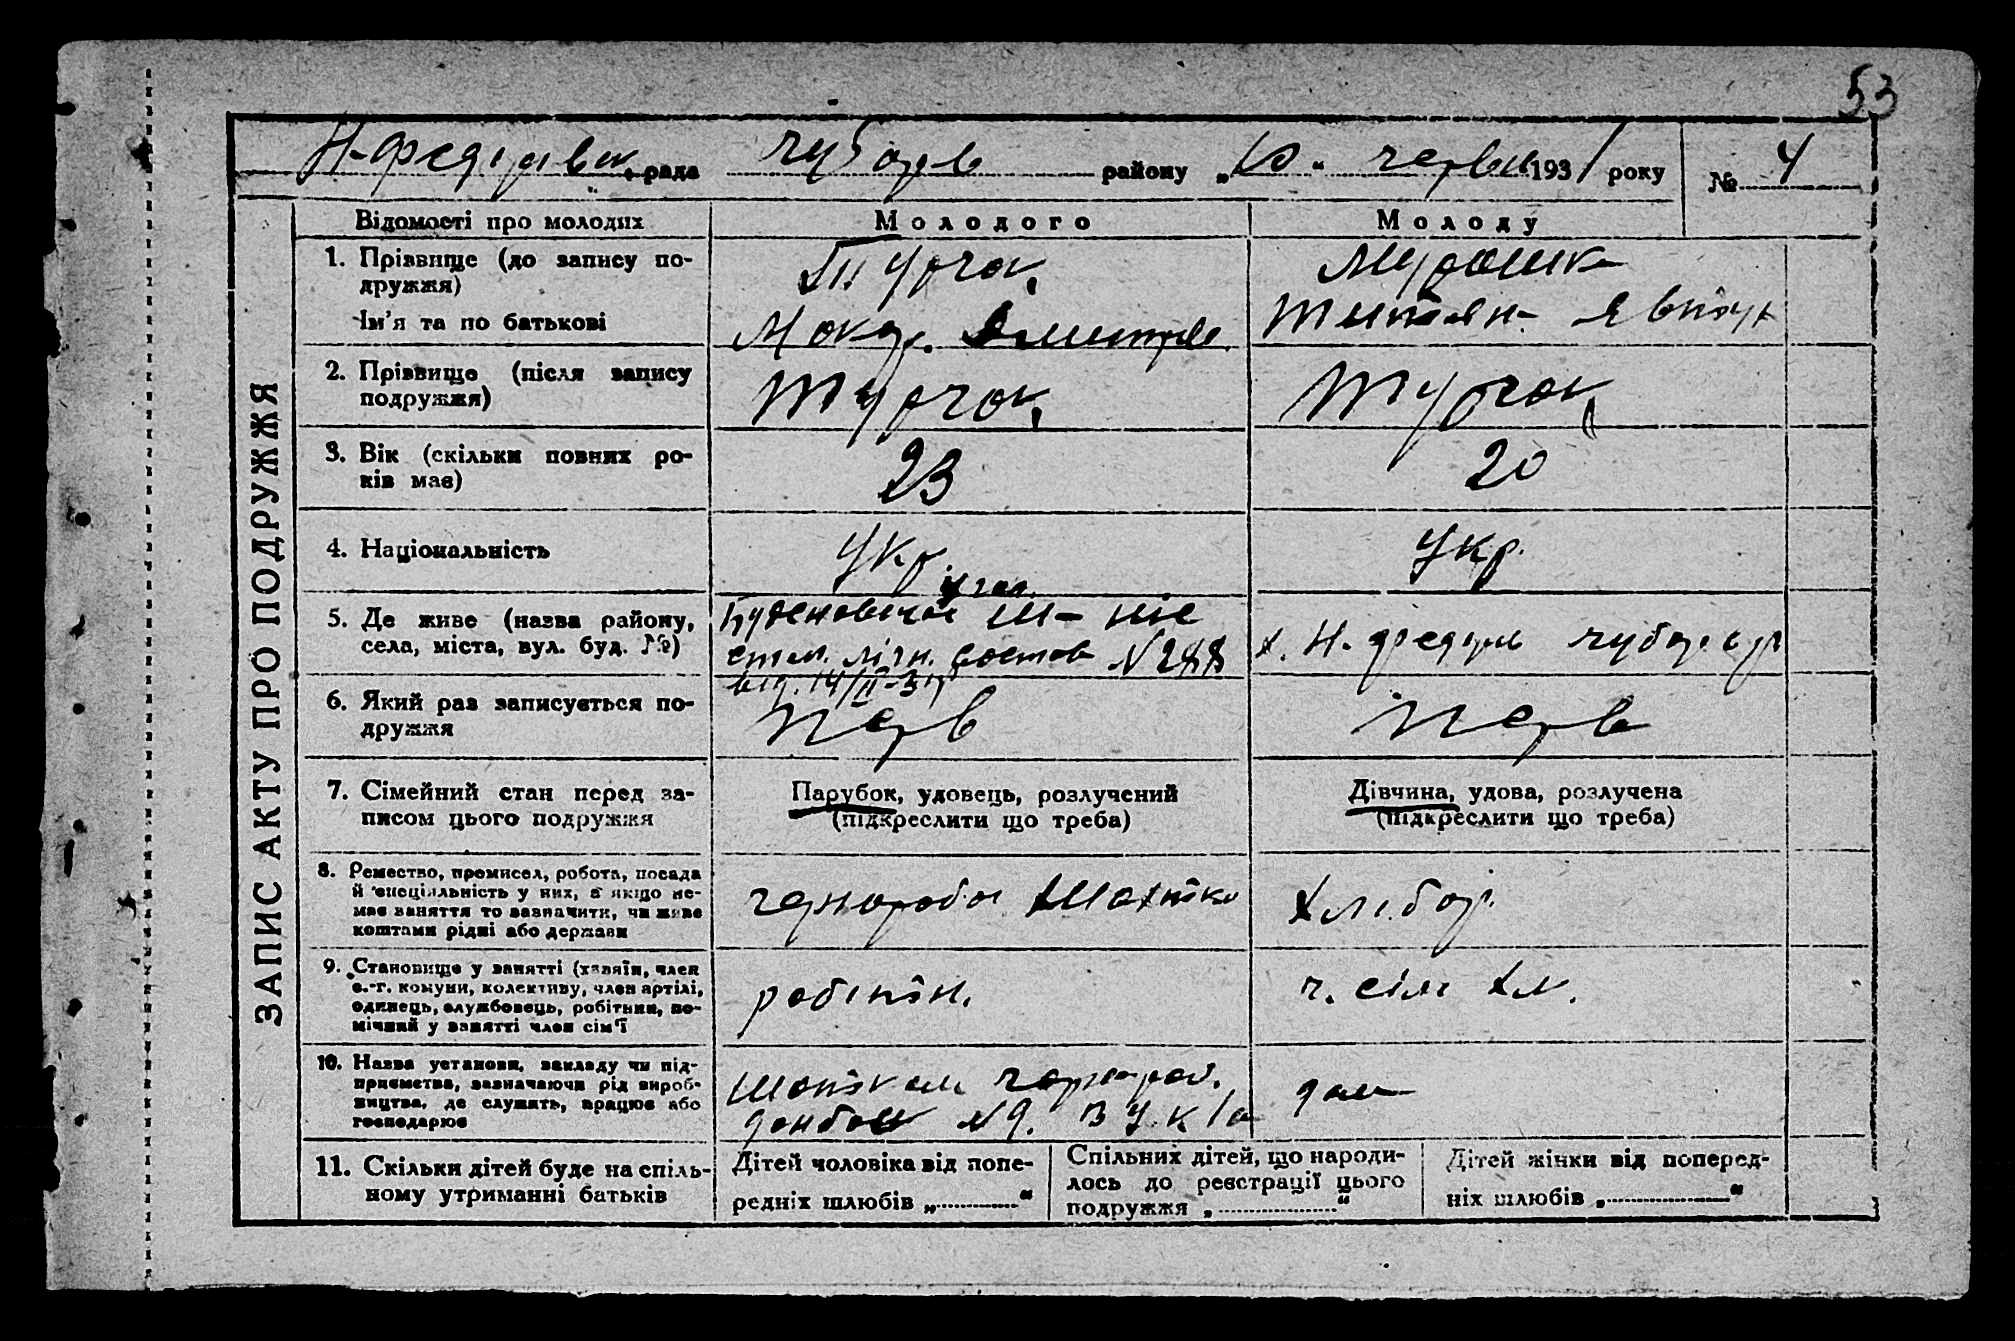 53
Н-Федорівск. рада Чубарів району „10" червня 1931 року № 4
ЗАПИС АКТУ ПРО ПОДРУЖЖЯ
Відомості про молодих Молодого Молоду
1. Прізвище (до запису по-
дружжя)
Турчак Мурашка
Ім'я та по батькові
Макар. Дмитров. Титян.
2. Прізвище (після запису
подружжя)
Турчак Турчак
3. Вік (скільки повних ро-
ків має)
23 20
4. Національність
Укр. Укр.
5. Де живе (назва району,
села, міста, вул. буд. №)
№ 288 х. Н. Федорів Чубар р
від. 14/II-31р
6. Який раз записується по-
дружжя
перв перв
7. Сімейний стан перед за-
писом цього подружжя
Парубок, удовець, розлучений
(підкреслити що треба)
Дівчина, удова, розлучена
(підкреслити що треба)
8. Ремество, промисел, робота, посада
й спеціяльність у них, а якщо не-
має заняття то зазначити, чи живе
коштами рідні або держави
чорнороб Шахтko Хлібор.
9. Становище у занятті (хазяїн, член
с.-г. комуни, колективу, член артілі,
одинець, службовець, робітник, по-
мічний у занятті член сім'ї
робітн. ч. сім хл.
10. Назва установи, закладу чи під-
приємства, зазначаючи рід вироб-
ництва, де служить, працює або
господарює
чорнороб. дом
донбас №9.
11. Скільки дітей буде на спіль-
ному утриманні батьків
Дітей чоловіка від попе-
редніх шлюбів „............"
Спільних дітей, що народи-
лось до реєстрації цього
подружжя „............"
Дітей жінки від поперед-
ніх шлюбів „............"